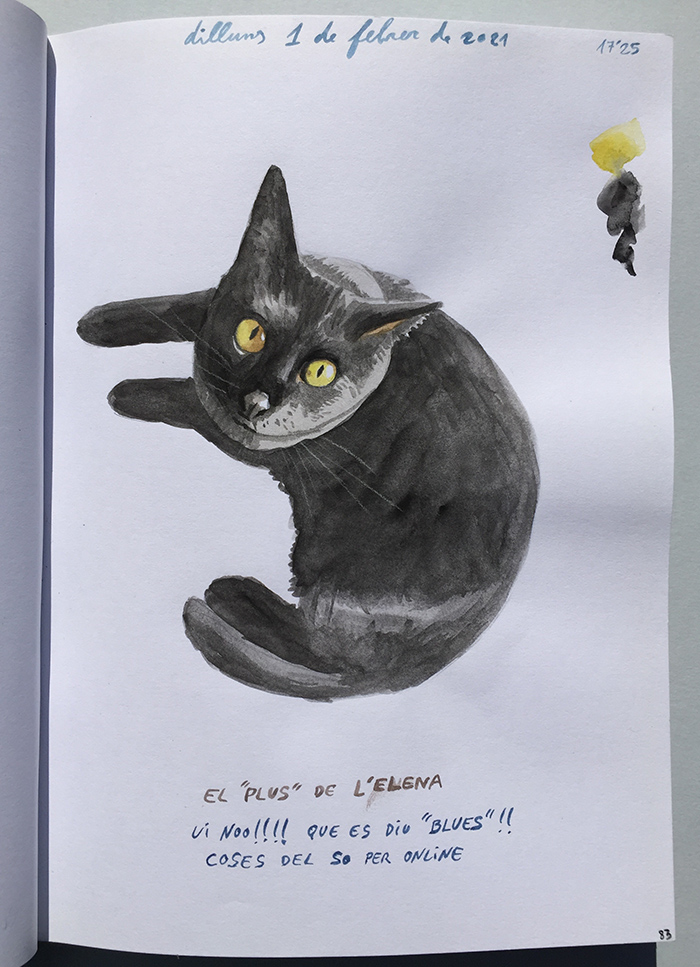 dilluns 1 de febrer de 2021
17'25
EL "PLUS" DE L'ELENA
UI NOO!!!! QUE ES DIU "BLUES"!!
COSES DEL SO PER ONLINE
83